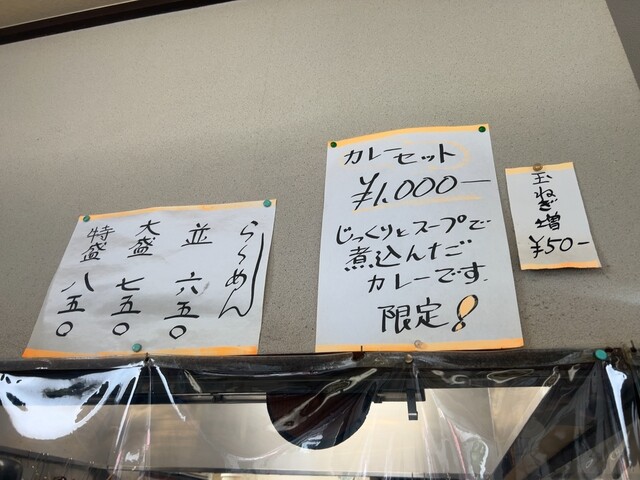 らーめん
並 六五〇
大盛 七五〇
特盛 八五〇
カレーセット
¥1,000-
じっくりとスープで
煮込んだ
カレーです.
限定!
玉ねぎ増
¥50-